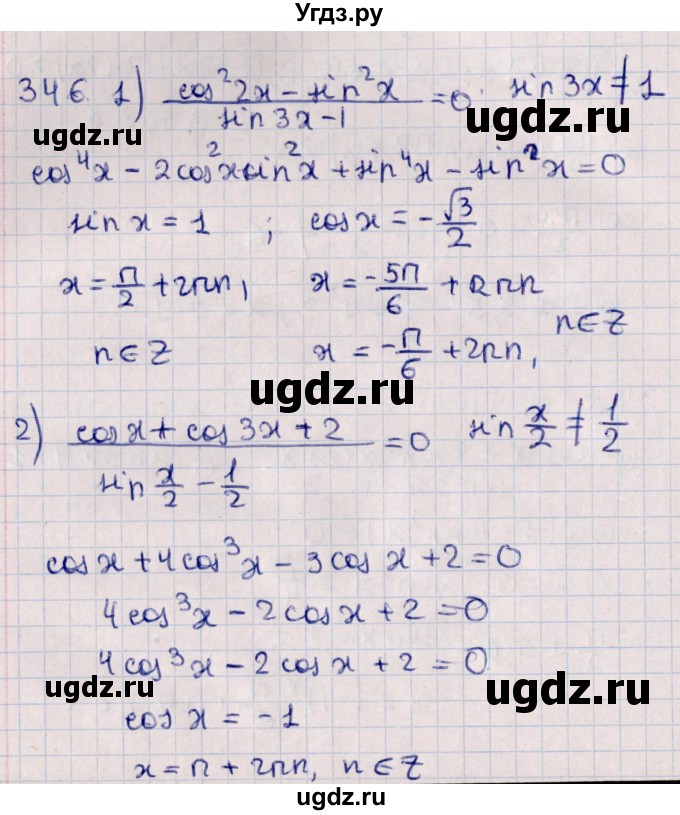 Угдз.ру
346. 1) (cos²2x - sin²x)/(sin3x - 1) = 0; sin3x ≠ 1
ugdz.ru ugdz.ru
cos⁴x - 2cos²x sin²x + sin⁴x - sin²x = 0
sin x = 1 ; cos x = -√3/2
x = π/2 + 2πn, x = -5π/6 + 2πn
n ∈ Z x = -π/6 + 2πn, n ∈ Z
ugdz.ru
2) (cosx + cos3x + 2)/(sin x/2 - 1/2) = 0 sin x/2 ≠ 1/2
ugdz.ru
cosx + 4cos³x - 3cosx + 2 = 0
4cos³x - 2cosx + 2 = 0
4cos³x - 2cosx + 2 = 0
ugdz.ru ugdz.ru
cos x = -1
x = π + 2πn, n ∈ Z
ugdz.ru
ugdz.ru